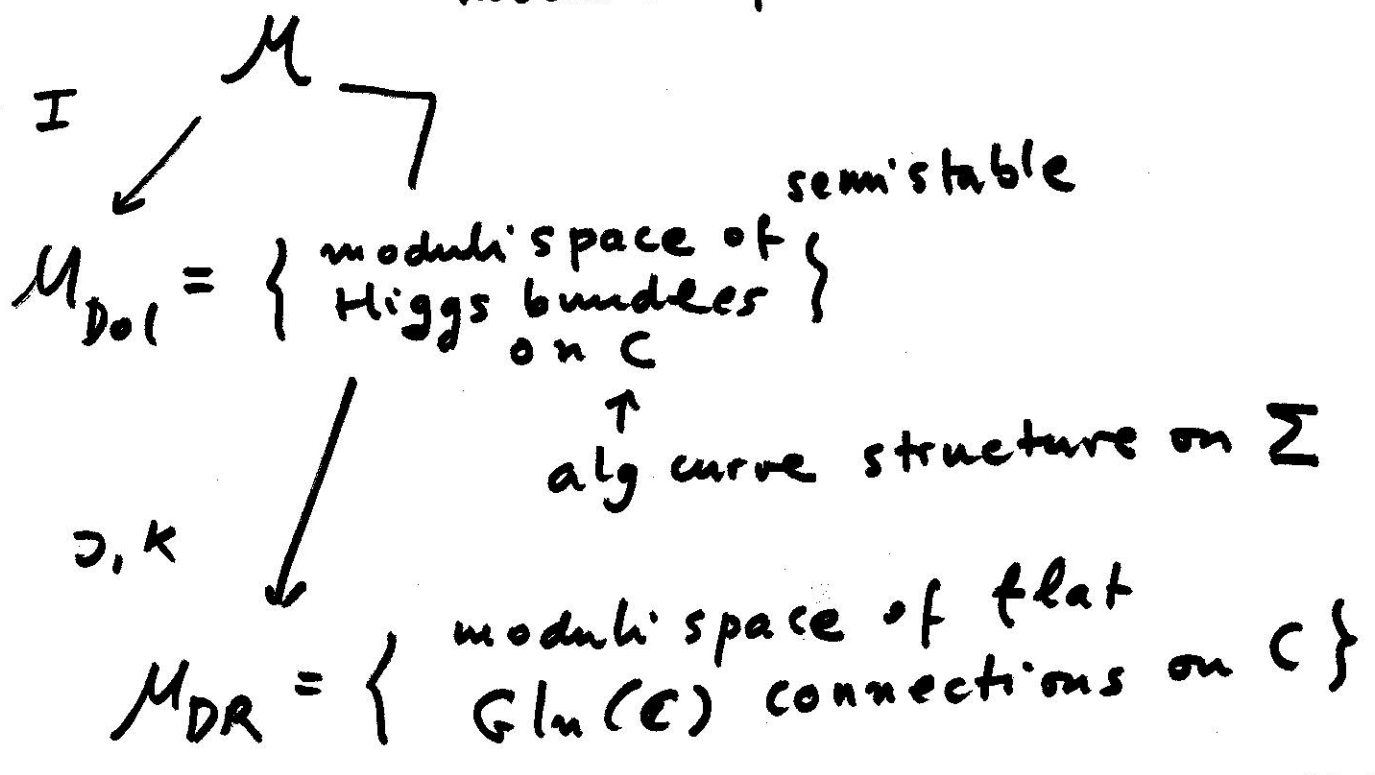 M
I
semistable
M_Dol = { moduli space of
Higgs bundles }
on C
↑
alg curve structure on Σ
J, K
moduli space of flat
M_DR = { Gln(C) connections on C }